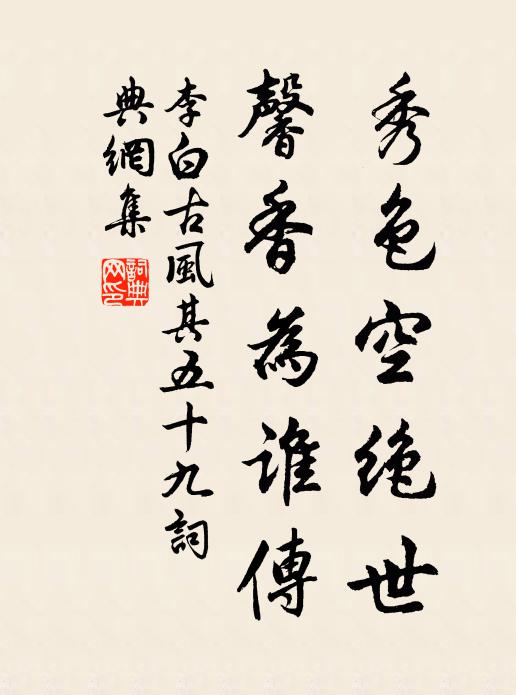 秀色空絶世
馨香為誰傳
李白古風其五十九詞
典網集
詞典
网印